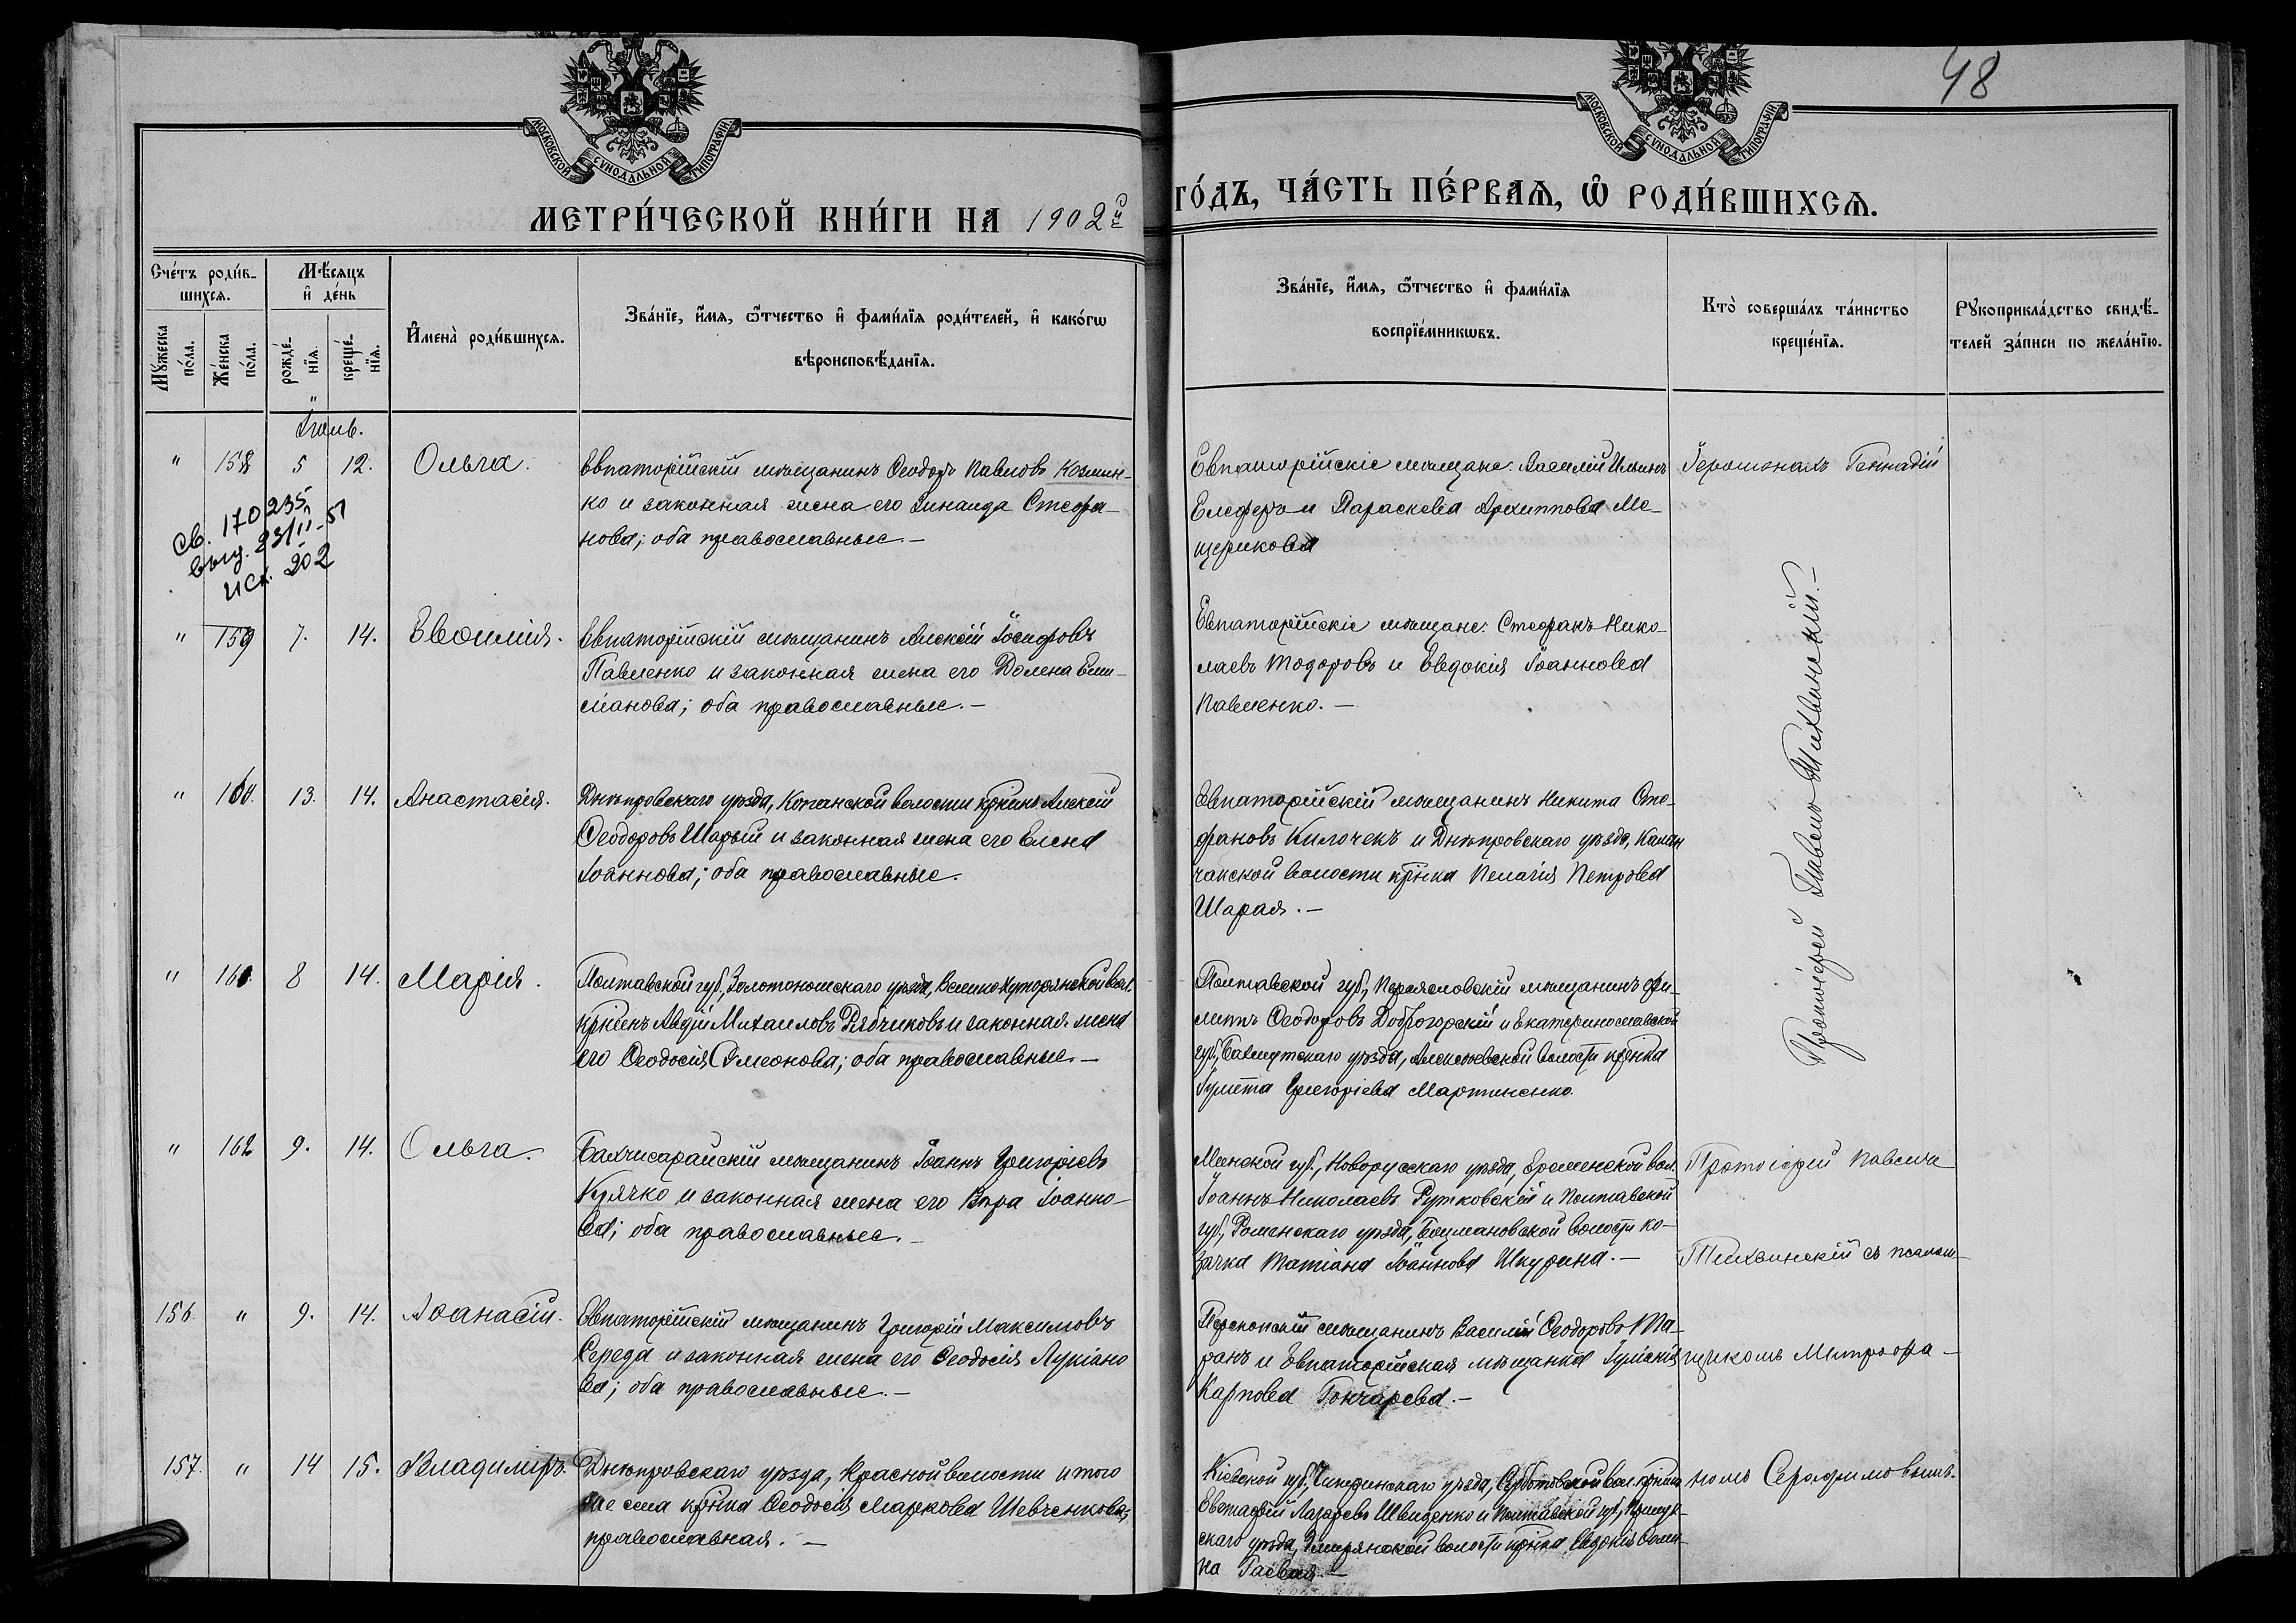 48
МОСКОВСКОЙ СУНОДАЛЬНОЙ ТИПОГРАФІИ
МОСКОВСКОЙ СУНОДАЛЬНОЙ ТИПОГРАФІИ
МЕТРИ́ЧЕСКОЙ КНИ́ГИ НА 1902й
ГО́ДЪ, ЧА́СТЬ ПЕ́РВАѦ, Ѡ РОДИ́ВШИХСѦ.
Сче́тъ роди́в-
шихсѧ.
Мꙋ́жеска по́ла.
Же́нска по́ла.
Мѣ́сѧцъ
и҆ де́нь
рожде́-
нїѧ.
креще́-
нїѧ.
И҆мена̀ роди́вшихсѧ.
Зва́нїе, и҆́мѧ, ѻ҆́тчество и҆ фами́лїѧ роди́телей, и҆ како́гѡ
вѣроисповѣ́данїѧ.
Зва́нїе, и҆́мѧ, ѻ҆́тчество и҆ фами́лїѧ
воспрїе́мникѡвъ.
Кто̀ соверша́лъ та́инство
креще́нїѧ.
Рꙋкоприкла́дство свидѣ́-
телей за́писи по жела́нїю.
Іюль.
" 158 5 12. Ольга.
Евпаторійскій мѣщанинъ Ѳеодоръ Павловъ Козмин-
ко и законная жена его Зинаида Стефа-
нова; оба православные.—
Евпаторійскіе мѣщане: Василій Ильинъ
Елеферъ и Параскева Архиппова Ме-
щерикова
Іеромонахъ Геннадій
св. 170235
выд. 23/II-51
исх. 202
" 159 7. 14. Евѳимія.
Евпаторійскій мѣщанинъ Алексій Іосифовъ
Павленко и законная жена его Домна Еми-
ліанова; оба православные.—
Евпаторійскіе мѣщане: Стефанъ Нико-
лаевъ Тодоровъ и Евдокія Іоаннова
Павленко.—
" 160. 13. 14. Анастасія.
Днѣпровскаго уѣзда, Копанской волости кр-нинъ Алексій
Ѳеодоровъ Шарый и законная жена его Елена
Іоаннова; оба православные.
Евпаторійскій мѣщанинъ Никита Сте-
фановъ Килочекъ и Днѣпровскаго уѣзда, Калан
чакской волости кр-нка Пелагія Петрова
Шарая.—
" 161. 8 14. Марія.
Полтавской губ., Золотоношскаго уѣзда, Велико-Хуторянской вол.
кр-нинъ Авдій Михаиловъ Рябчиковъ и законная жена
его Ѳеодосія Симеонова; оба православные.—
Полтавской губ., Переясловскій мѣщанинъ Фи-
липпъ Ѳеодоровъ Доброгорскій и Екатеринославской
губ., Бахмутскаго уѣзда, Алексѣевской волости кр-нка
Іулитта Григоріева Мартиненко.
Протоіерей Павелъ Тихвинскій.—
" 162 9. 14. Ольга.
Бахчисарайскій мѣщанинъ Іоаннъ Григоріевъ
Крячко и законная жена его Вѣра Іоанно-
ва; оба православные.—
Минской губ., Новогрудскаго уѣзда, Еременской вол.
Іоаннъ Николаевъ Рутковскій и Полтавской
губ., Роменскаго уѣзда, Боцмановской волости ко-
зачка Татіана Іоаннова Шкурина.—
Протоіерей Павелъ
Тихвинскій съ псалом-
156. " 9. 14. Аѳанасій.
Евпаторійскій мѣщанинъ Григорій Максимовъ
Середа и законная жена его Ѳеодосія Лукіано
ва; оба православные.—
Перекопскій мѣщанинъ Василій Ѳеодоровъ Та-
ранъ и Евпаторійская мѣщанка Іуліанія
Карпова Гончарева.—
щикомъ Митрофа-
157. " 14 15. Владиміръ.
Днѣпровскаго уѣзда, Красной волости и того
же села кр-нка Ѳеодосія Маркова Шевченкова,
православная.—
Кіевской губ., Чигиринскаго уѣзда, Субботовской вол. кр-нинъ
Евстафій Лазаревъ Швиденко и Полтавской губ., Прилук-
скаго уѣзда, волости кр-нка Евдокія
на Гаевая.—
номъ Серафимовымъ.